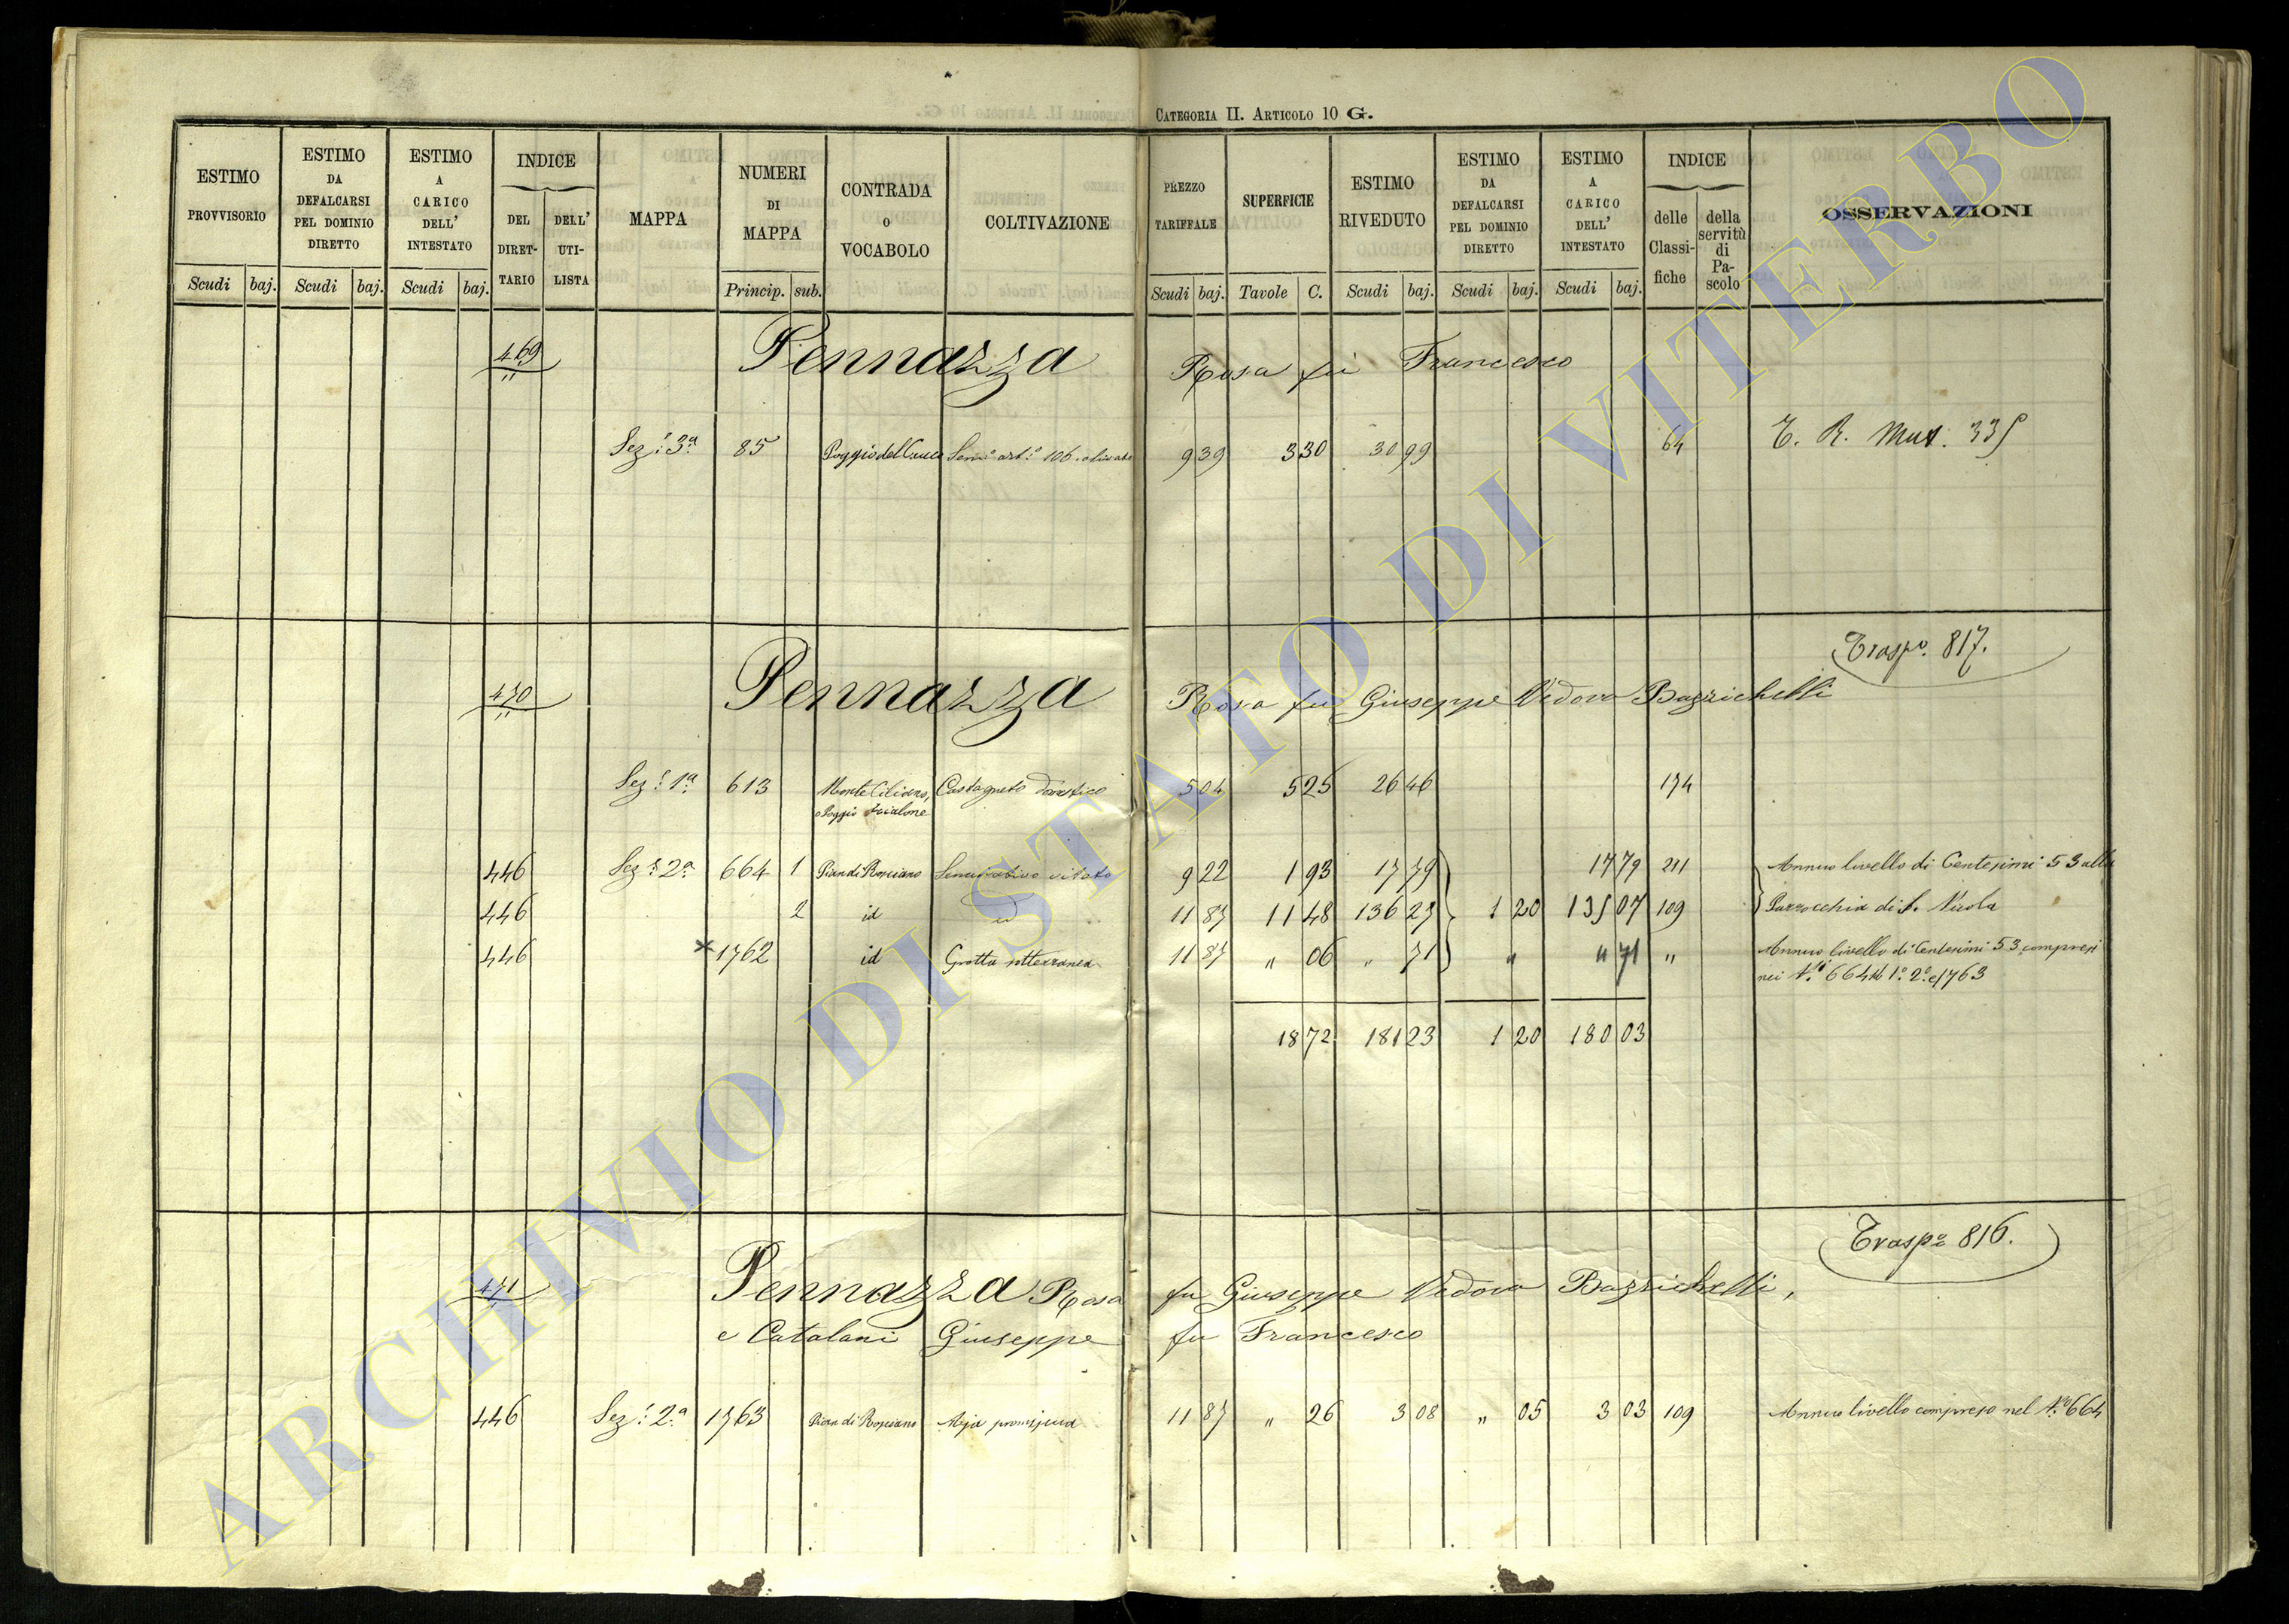 CATEGORIA II. ARTICOLO 10 G.
ESTIMO PROVVISORIO | ESTIMO DA DEFALCARSI PEL DOMINIO DIRETTO | ESTIMO A CARICO DELL' INTESTATO | INDICE DEL DIRETTARIO | DELL' UTILISTA | MAPPA | NUMERI DI MAPPA | CONTRADA o VOCABOLO | COLTIVAZIONE | PREZZO TARIFFALE | SUPERFICIE | ESTIMO RIVEDUTO | ESTIMO DA DEFALCARSI PEL DOMINIO DIRETTO | ESTIMO A CARICO DELL' INTESTATO | INDICE delle Classifiche | della servitù di Pascolo | OSSERVAZIONI
Scudi baj. Scudi baj. Scudi baj. Princip. sub. Scudi baj. Tavole C. Scudi baj. Scudi baj. Scudi baj.
469 Pennazza Rosa fu Francesco
Sez. 3a 85 Poggio del Cucco Sem.o art.o 106. olivato 9 39 3 30 30 99 64 T. R. Mut. 335
Trasp.o 817.
470 Pennazza Rosa fu Giuseppe Vedova Bazzichelli
Sez. 1a 613 Monte Ciliano, Castagneto 5 04 5 25 26 46 174
o Poggio
446 Sez. 2a 664 1 Pian di Ronciano Seminativo vitato 9 22 1 93 17 79 17 79 211 Annuo livello di Centesimi 53 alla
446 2 id id 11 87 11 48 136 27 1 20 135 07 109 Parrocchia di S. Nicola
446 *1762 id Grotta sotterranea 11 87 " 06 " 71 " " 71 " Annuo livello di Centesimi 53 compresi
nei N.i 664 1° 2° e 1763
18 72 181 23 1 20 180 03
Trasp.o 816.
471 Pennazza Rosa fu Giuseppe Vedova Bazzichelli,
e Catalani Giuseppe fu Francesco
446 Sez. 2a 1763 Pian di Ronciano Aja promiscua 11 87 " 26 3 08 " 05 3 03 109 Annuo livello compreso nel N.o 664
ARCHIVIO DI STATO DI VITERBO